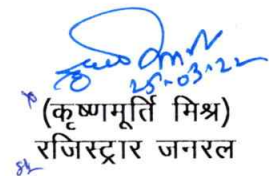 25-03-22
(कृष्णमूर्ति मिश्र)
रजिस्ट्रार जनरल